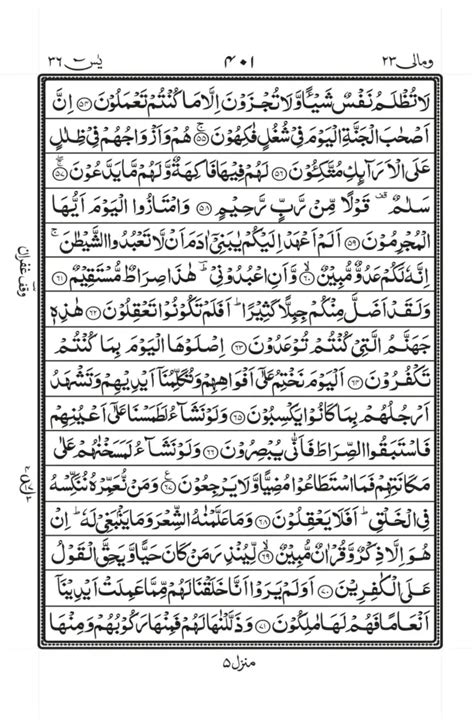 ومالی ۲۳ ۴۰۱ یٰسٓ ۳۶
لَا تُظْلَمُ نَفْسٌ شَیْـًٔا وَّلَا تُجْزَوْنَ اِلَّا مَا كُنْتُمْ تَعْمَلُوْنَ ﴿۵۴﴾ اِنَّ
اَصْحٰبَ الْجَنَّةِ الْیَوْمَ فِیْ شُغُلٍ فٰكِهُوْنَ ﴿۵۵﴾ هُمْ وَاَزْوَاجُهُمْ فِیْ ظِلٰلٍ
عَلَی الْاَرَآىِٕكِ مُتَّكِـُٔوْنَ ﴿۵۶﴾ لَهُمْ فِیْهَا فَاكِهَةٌ وَّلَهُمْ مَّا یَدَّعُوْنَ ﴿۵۷﴾
سَلٰمٌ قف قَوْلًا مِّنْ رَّبٍّ رَّحِیْمٍ ﴿۵۸﴾ وَامْتَازُوا الْیَوْمَ اَیُّهَا
الْمُجْرِمُوْنَ ﴿۵۹﴾ اَلَمْ اَعْهَدْ اِلَیْكُمْ یٰبَنِیْۤ اٰدَمَ اَنْ لَّا تَعْبُدُوا الشَّیْطٰنَ ۚ
اِنَّهٗ لَكُمْ عَدُوٌّ مُّبِیْنٌ ﴿۶۰﴾ وَّاَنِ اعْبُدُوْنِیْ ؕ هٰذَا صِرَاطٌ مُّسْتَقِیْمٌ ﴿۶۱﴾
وقف غفران
وَلَقَدْ اَضَلَّ مِنْكُمْ جِبِلًّا كَثِیْرًا ؕ اَفَلَمْ تَكُوْنُوْا تَعْقِلُوْنَ ﴿۶۲﴾ هٰذِهٖ
جَهَنَّمُ الَّتِیْ كُنْتُمْ تُوْعَدُوْنَ ﴿۶۳﴾ اِصْلَوْهَا الْیَوْمَ بِمَا كُنْتُمْ
تَكْفُرُوْنَ ﴿۶۴﴾ اَلْیَوْمَ نَخْتِمُ عَلٰۤی اَفْوَاهِهِمْ وَتُكَلِّمُنَاۤ اَیْدِیْهِمْ وَتَشْهَدُ
اَرْجُلُهُمْ بِمَا كَانُوْا یَكْسِبُوْنَ ﴿۶۵﴾ وَلَوْ نَشَآءُ لَطَمَسْنَا عَلٰۤی اَعْیُنِهِمْ
فَاسْتَبَقُوا الصِّرَاطَ فَاَنّٰی یُبْصِرُوْنَ ﴿۶۶﴾ وَلَوْ نَشَآءُ لَمَسَخْنٰهُمْ عَلٰی
مَكَانَتِهِمْ فَمَا اسْتَطَاعُوْا مُضِیًّا وَّلَا یَرْجِعُوْنَ ﴿۶۷﴾ وَمَنْ نُّعَمِّرْهُ نُنَكِّسْهُ
فِی الْخَلْقِ ؕ اَفَلَا یَعْقِلُوْنَ ﴿۶۸﴾ وَمَا عَلَّمْنٰهُ الشِّعْرَ وَمَا یَنْۢبَغِیْ لَهٗ ؕ اِنْ
هُوَ اِلَّا ذِكْرٌ وَّقُرْاٰنٌ مُّبِیْنٌ ﴿۶۹﴾ لِّیُنْذِرَ مَنْ كَانَ حَیًّا وَّیَحِقَّ الْقَوْلُ
عَلَی الْكٰفِرِیْنَ ﴿۷۰﴾ اَوَلَمْ یَرَوْا اَنَّا خَلَقْنَا لَهُمْ مِّمَّا عَمِلَتْ اَیْدِیْنَاۤ
اَنْعَامًا فَهُمْ لَهَا مٰلِكُوْنَ ﴿۷۱﴾ وَذَلَّلْنٰهَا لَهُمْ فَمِنْهَا رَكُوْبُهُمْ وَمِنْهَا
منزل ۵